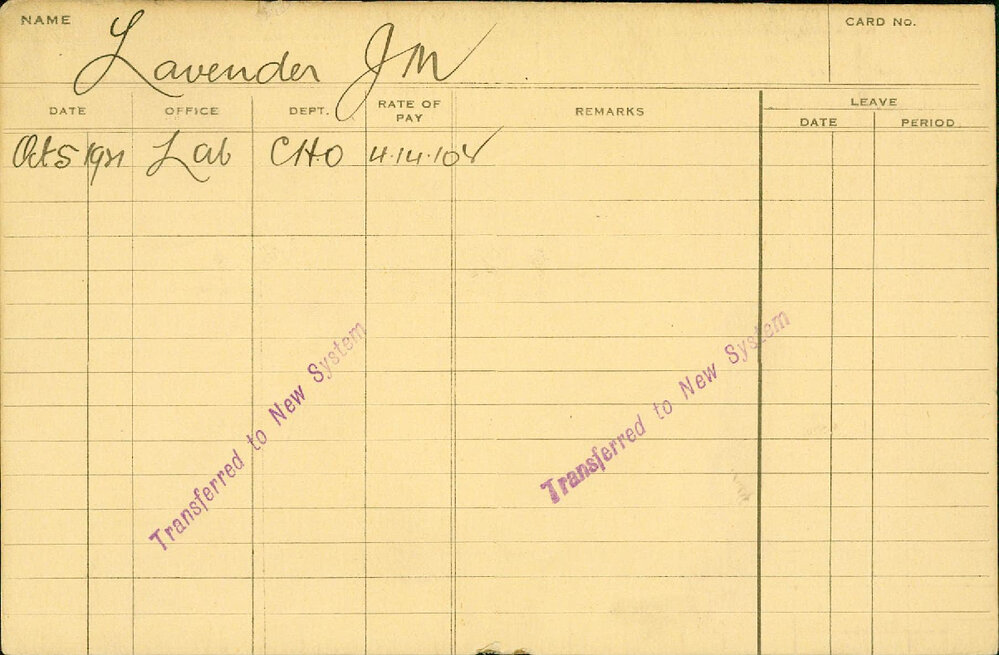 NAME
Lavender J M
CARD NO.
DATE OFFICE DEPT. RATE OF PAY REMARKS LEAVE
DATE PERIOD
Oct 5 1921 Lab CHO
Transferred to New System
Transferred to New System